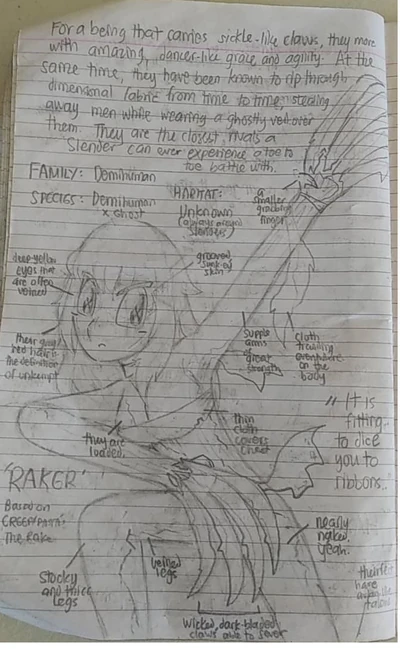 For a being that carries sickle-like claws, they move
with amazing, dancer-like grace and agility. At the
same time, they have been known to rip through
dimensional fabric from time to time, stealing
away men while wearing a ghostly veil over
them. They are the closest rivals a
Slender can ever experience a toe to
toe battle with.
FAMILY: Demihuman
SPECIES: Demihuman
x Ghost
HABITAT:
Unknown
a
smaller
finger
deep yellow
eyes that
are often
veined
grooved
sunk-ed
skin
their
red hair is
the definition
of unkempt
supple
arms
of
great
strength
cloth
trailing
everywhere
on the
body
they are
loaded.
thin
cloth
covers
chest
"It is
fitting
to dice
you to
ribbons.
"RAKER"
Based on
CREEPYPASTA:
The Rake
nearly
naked,
yeah.
veined
legs
Stocky
and thick
legs
their feet
have
talons
Wicked, dark-bladed
claws able to sever